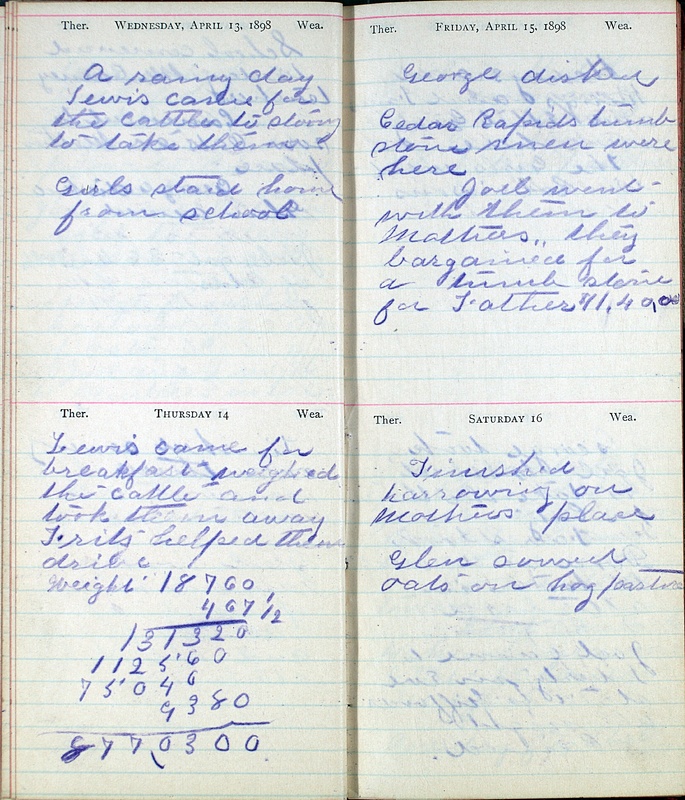 Ther. WEDNESDAY, APRIL 13, 1898 Wea.
A rainy day
Lewis came for
the cattle to stormy
to take them
Girls staid home
from school
Ther. THURSDAY 14 Wea.
Lewis came for
breakfast weighed
the cattle and
took them away
Frits helped them
drive
Weight 18760
467 1/2
131320
112560
75040
9380
8770300
Ther. FRIDAY, APRIL 15, 1898 Wea.
George disked
Cedar Rapids tumb
stone men were
here
Joel went
with them to
Mothers,, they
bargained for
a tumb stone
for Father
Ther. SATURDAY 16 Wea.
Finished
harrowing on
Mothers place
Glen sowed
oats on hog pasture